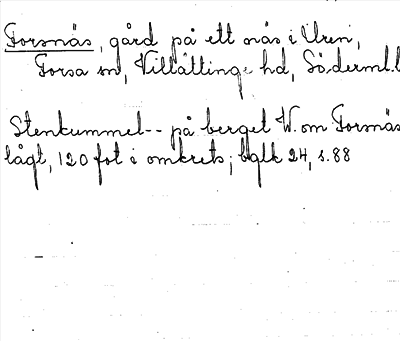 Forsnäs, gård på ett näs i Uren,
Forsa sn, Villåttinge hd, Söderml.l
Stenkummel-- på berget W. om Forsnäs
lågt, 120 fot i omkrets; bglk 24, s. 88